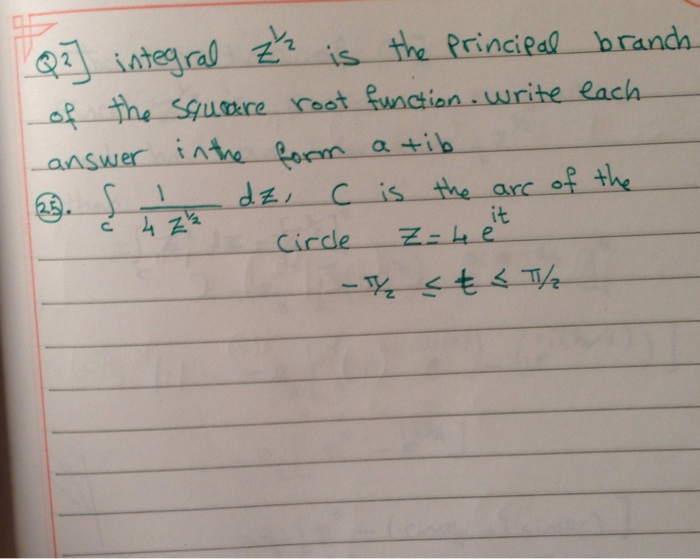 Q2] integral z^1/2 is the principal branch
of the squuare root function. write each
answer in the form a + ib
(25). ∫_C 1/(4 z^1/2) dz, C is the arc of the
circle z = 4 e^it
-π/2 ≤ t ≤ π/2